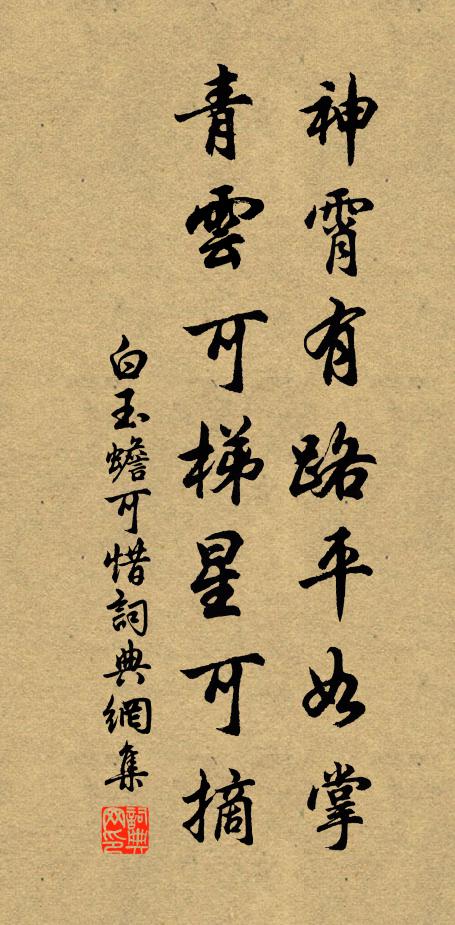 神霄有路平如掌
青雲可梯星可摘
白玉蟾可惜詞典網集
詞典網印